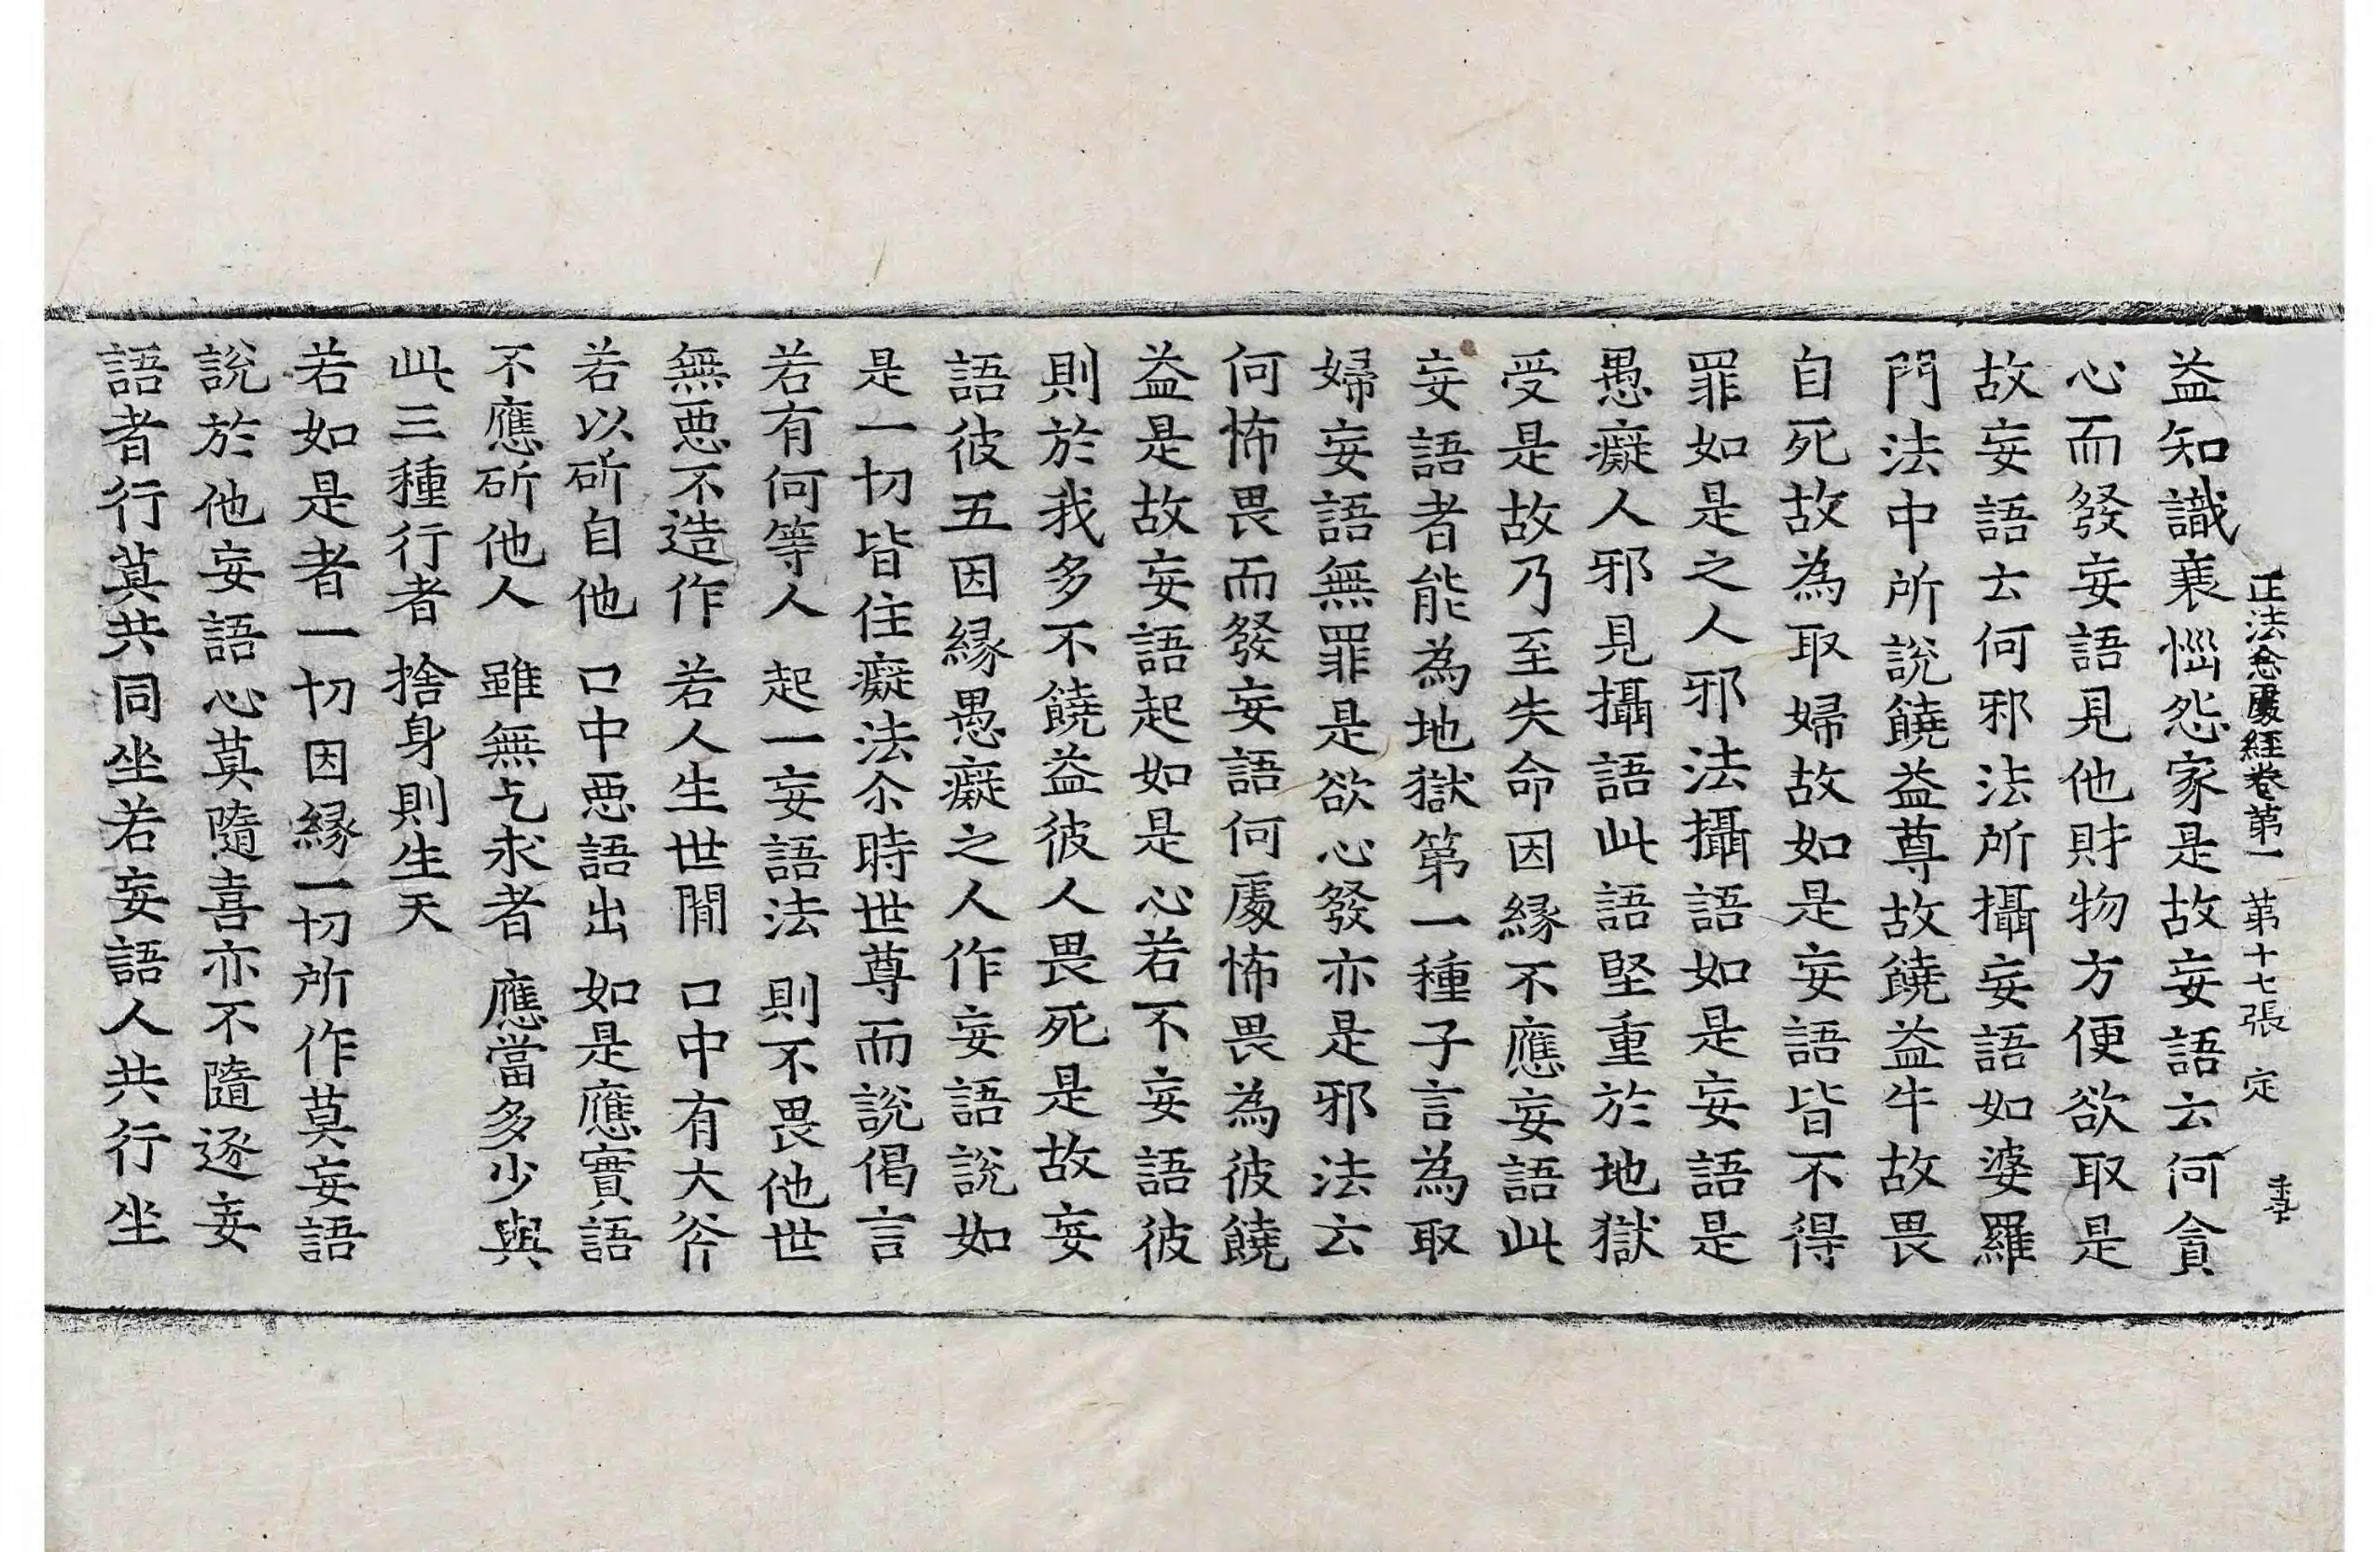 正法念處経卷第一 第十七張 定
益知識衰惱怨家是故妄語云何貪
心而發妄語見他財物方便欲取是
故妄語云何邪法所攝妄語如婆羅
門法中所說饒益尊故饒益牛故畏
自死故為取婦故如是妄語皆不得
罪如是之人邪法攝語如是妄語是
愚癡人邪見攝語此語堅重於地獄
受是故乃至失命因緣不應妄語此
妄語者能為地獄第一種子言為取
婦妄語無罪是欲心發亦是邪法云
何怖畏而發妄語何處怖畏為彼饒
益是故妄語起如是心若不妄語彼
則於我多不饒益彼人畏死是故妄
語彼五因緣愚癡之人作妄語說如
是一切皆住癡法尒時世尊而說偈言
若有何等人 起一妄語法 則不畏他世
無惡不造作 若人生世間 口中有大斧
若以斫自他 口中惡語出 如是應實語
不應斫他人 雖無乞求者 應當多少與
此三種行者 捨身則生天
若如是者一切因緣一切所作莫妄語
說於他妄語心莫隨喜亦不隨逐妄
語者行莫共同坐若妄語人共行坐